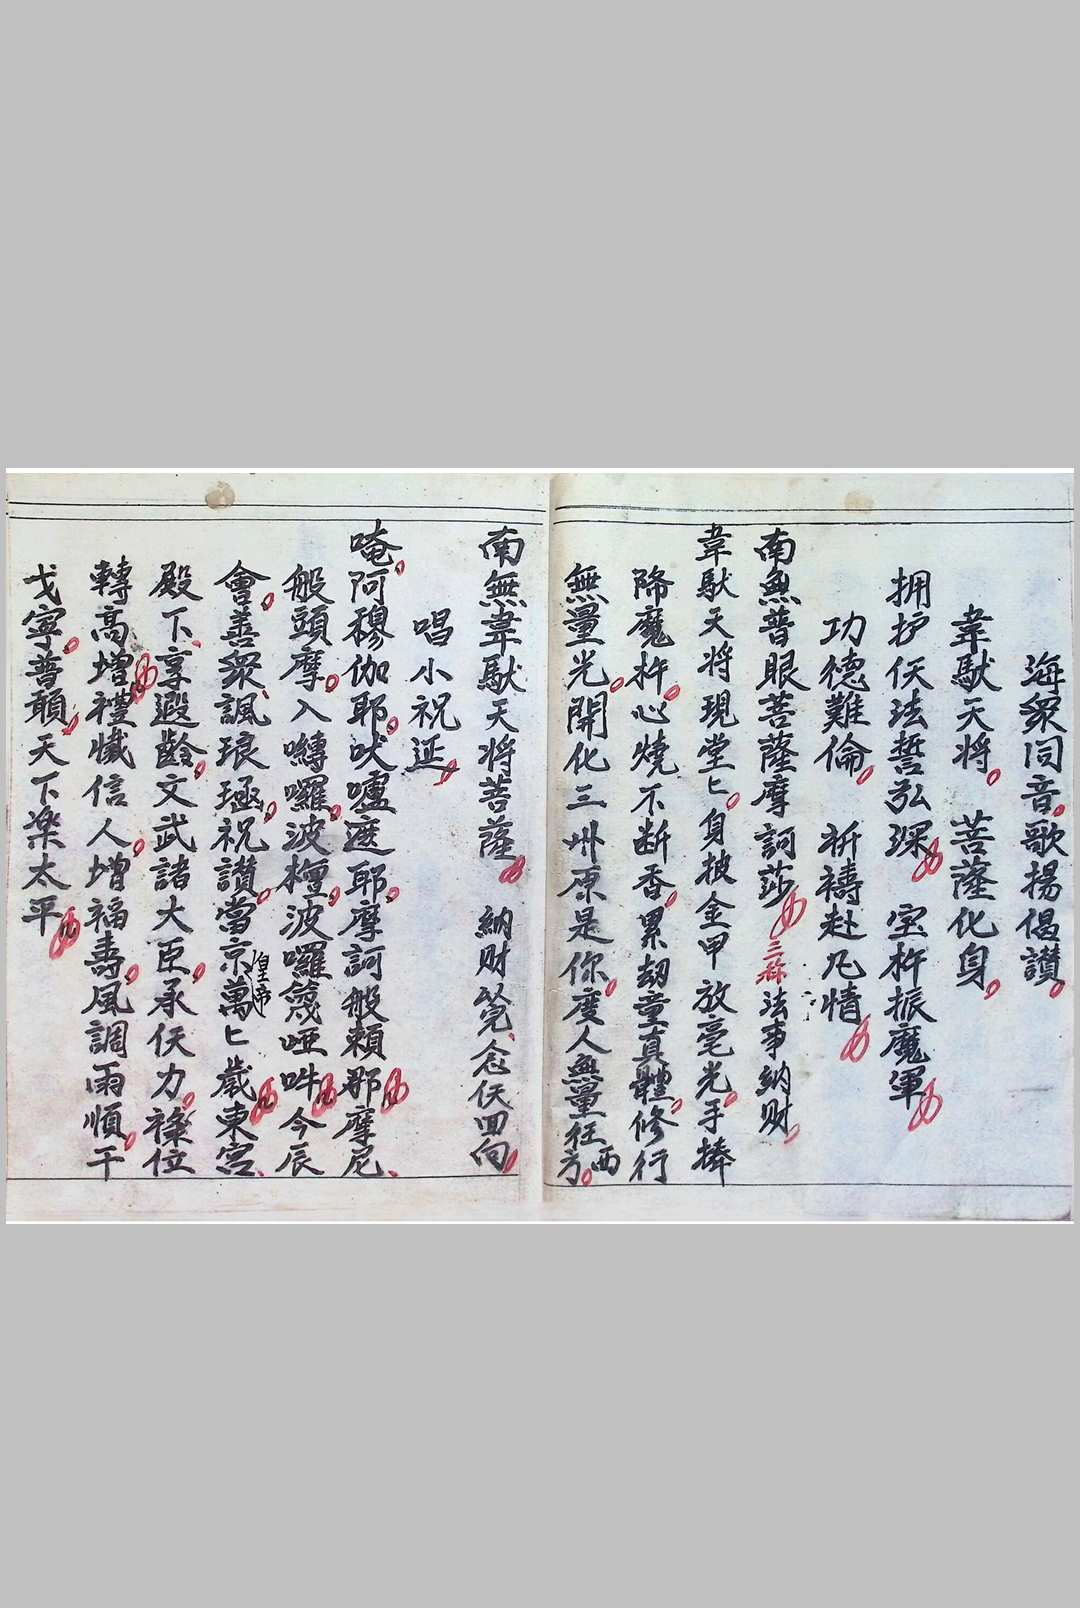 海眾同音歌揚偈讃
韋馱天将 菩薩化身
拥护仸法誓弘琛 宝杵振魔軍
功德難倫 祈禱赴凡情
南無普眼菩薩摩訶莎 三称 法事納财
韋馱天将現堂匕身披金甲放毫光手捧
降魔杵心燒不断香累劫童真體修行
無量光開化三州原是你度人無量徃西方
南無韋馱天将菩薩 納财完念仸回向
唱小祝延
唵阿穆伽耶吠嚧遮耶摩訶般賴那摩尼
般頭摩入嚩囉波檀波囉篾哑吽今辰
會善眾諷琅函祝讃當京皇帝萬匕歲東宮
殿下享遐齡文武諸大臣承仸力祿位
轉高增禮懺信人增福壽風調雨順干
戈寧普願天下楽太平